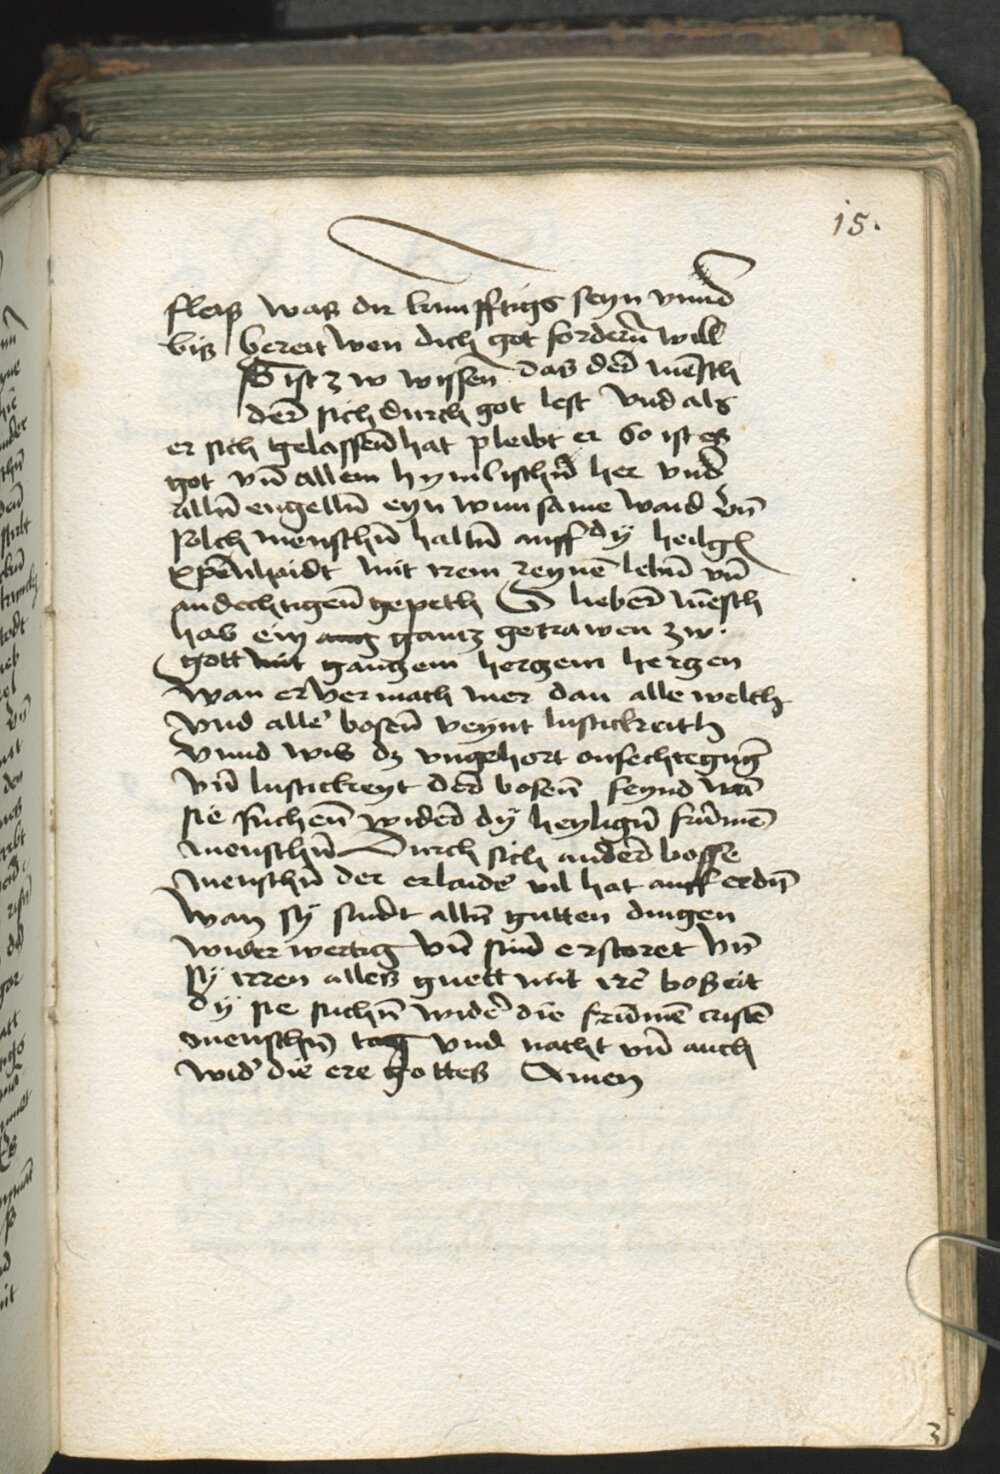 15.
fleiß was dir kumfftigs seyn vnnd
bis bereit wen dich got fordern̄ will
ES ist zw wissen das der mēsch
der sich durch got lest vnd als
er sich gelassen̄ hat pleibt er So ist es
got vn̄ allem hymlischn̄ her vnd
alln̄ engelln̄ eyn wunsame waid vn̄
solch menschn̄ haltn̄ auff dy heilgē
xpēnhaidt mit irem reynē lebn̄ vn̄
andechtigen̄ gepeth O lieber mēsch
hab ein gantz getrawen zw
gott mit gantzem hertzem hertzen
wan er vermach mer dan alle welth
vnd alle bosen̄ veynt listickeith
vnnd wis dz vngehort onfechtegūg
vn̄ listickeyt der bosen̄ feynd wān
sie suchen̄ wider dy heylign̄ frūmē
menschn̄ Durch sich ander bosse
menschn̄ der er laider vil hat auff erdn̄
wan sy sindt alln̄ gutten dingen
wider wertig vn̄ sind erstoret vn̄
sy irren alles guett mit irē bosheit
dy sie suchn̄ wider die frūmē cristē
menschn̄ tag vnd nacht vn̄ auch
wider die ere gottes Amen
3